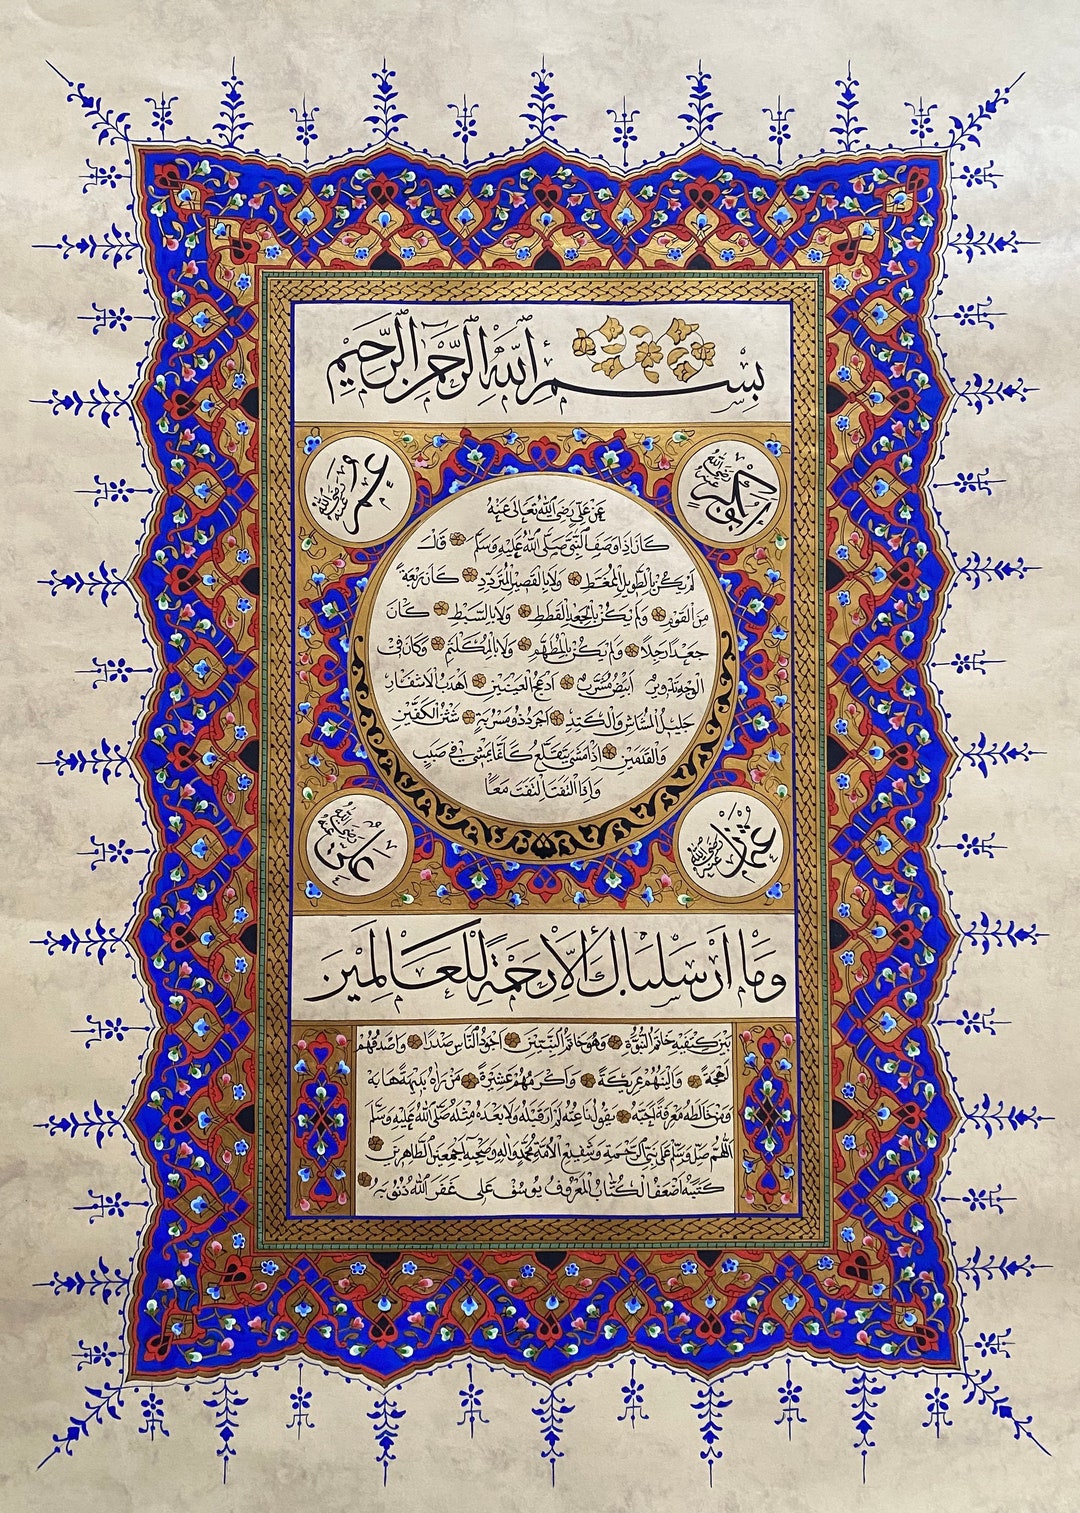 بِسْمِ اللهِ الرَّحْمٰنِ الرَّحِيْمِ
أبو بكر رضي الله عنه
عمر رضي الله عنه
عَنْ عَلِيٍّ رَضِيَ اللهُ تَعَالَى عَنْهُ
كَانَ إِذَا وَصَفَ النَّبِيَّ صَلَّى اللهُ عَلَيْهِ وَسَلَّمَ قَالَ
لَمْ يَكُنْ بِالطَّوِيلِ الْمُمَغَّطِ وَلَا بِالْقَصِيرِ الْمُتَرَدِّدِ كَانَ رَبْعَةً
مِنَ الْقَوْمِ وَلَمْ يَكُنْ بِالْجَعْدِ الْقَطَطِ وَلَا بِالسَّبِطِ كَانَ
جَعْدًا رَجِلًا وَلَمْ يَكُنْ بِالْمُطَهَّمِ وَلَا بِالْمُكَلْثَمِ وَكَانَ فِي
الْوَجْهِ تَدْوِيرٌ أَبْيَضُ مُشْرَبٌ أَدْعَجُ الْعَيْنَيْنِ أَهْدَبُ الْأَشْفَارِ
جَلِيلُ الْمُشَاشِ وَالْكَتَدِ أَجْرَدُ ذُو مَسْرُبَةٍ شَثْنُ الْكَفَّيْنِ
وَالْقَدَمَيْنِ إِذَا مَشَى يَتَقَلَّعُ كَأَنَّمَا يَمْشِي فِي صَبَبٍ
وَإِذَا الْتَفَتَ الْتَفَتَ مَعًا
عثمان رضي الله عنه
علي رضي الله عنه
وَمَا أَرْسَلْنَاكَ إِلَّا رَحْمَةً لِلْعَالَمِينَ
بَيْنَ كَتِفَيْهِ خَاتَمُ النُّبُوَّةِ وَهُوَ خَاتَمُ النَّبِيِّينَ أَجْوَدُ النَّاسِ صَدْرًا وَأَصْدَقُهُمْ
لَهْجَةً وَأَلْيَنُهُمْ عَرِيكَةً وَأَكْرَمُهُمْ عَشِيرَةً مَنْ رَآهُ بَدِيهَةً هَابَهُ
وَمَنْ خَالَطَهُ مَعْرِفَةً أَحَبَّهُ يَقُولُ نَاعِتُهُ لَمْ أَرَ قَبْلَهُ وَلَا بَعْدَهُ مِثْلَهُ صَلَّى اللهُ عَلَيْهِ وَسَلَّمَ
اللّٰهُمَّ صَلِّ وَسَلِّمْ عَلَى نَبِيِّ الرَّحْمَةِ وَشَفِيعِ الْأُمَّةِ مُحَمَّدٍ وَآلِهِ وَصَحْبِهِ أَجْمَعِينَ الطَّاهِرِينَ
كَتَبَهُ أَضْعَفُ الْكُتَّابِ الْمَعْرُوفُ يُوسُفْ عَلِي غَفَرَ اللهُ ذُنُوبَهُ